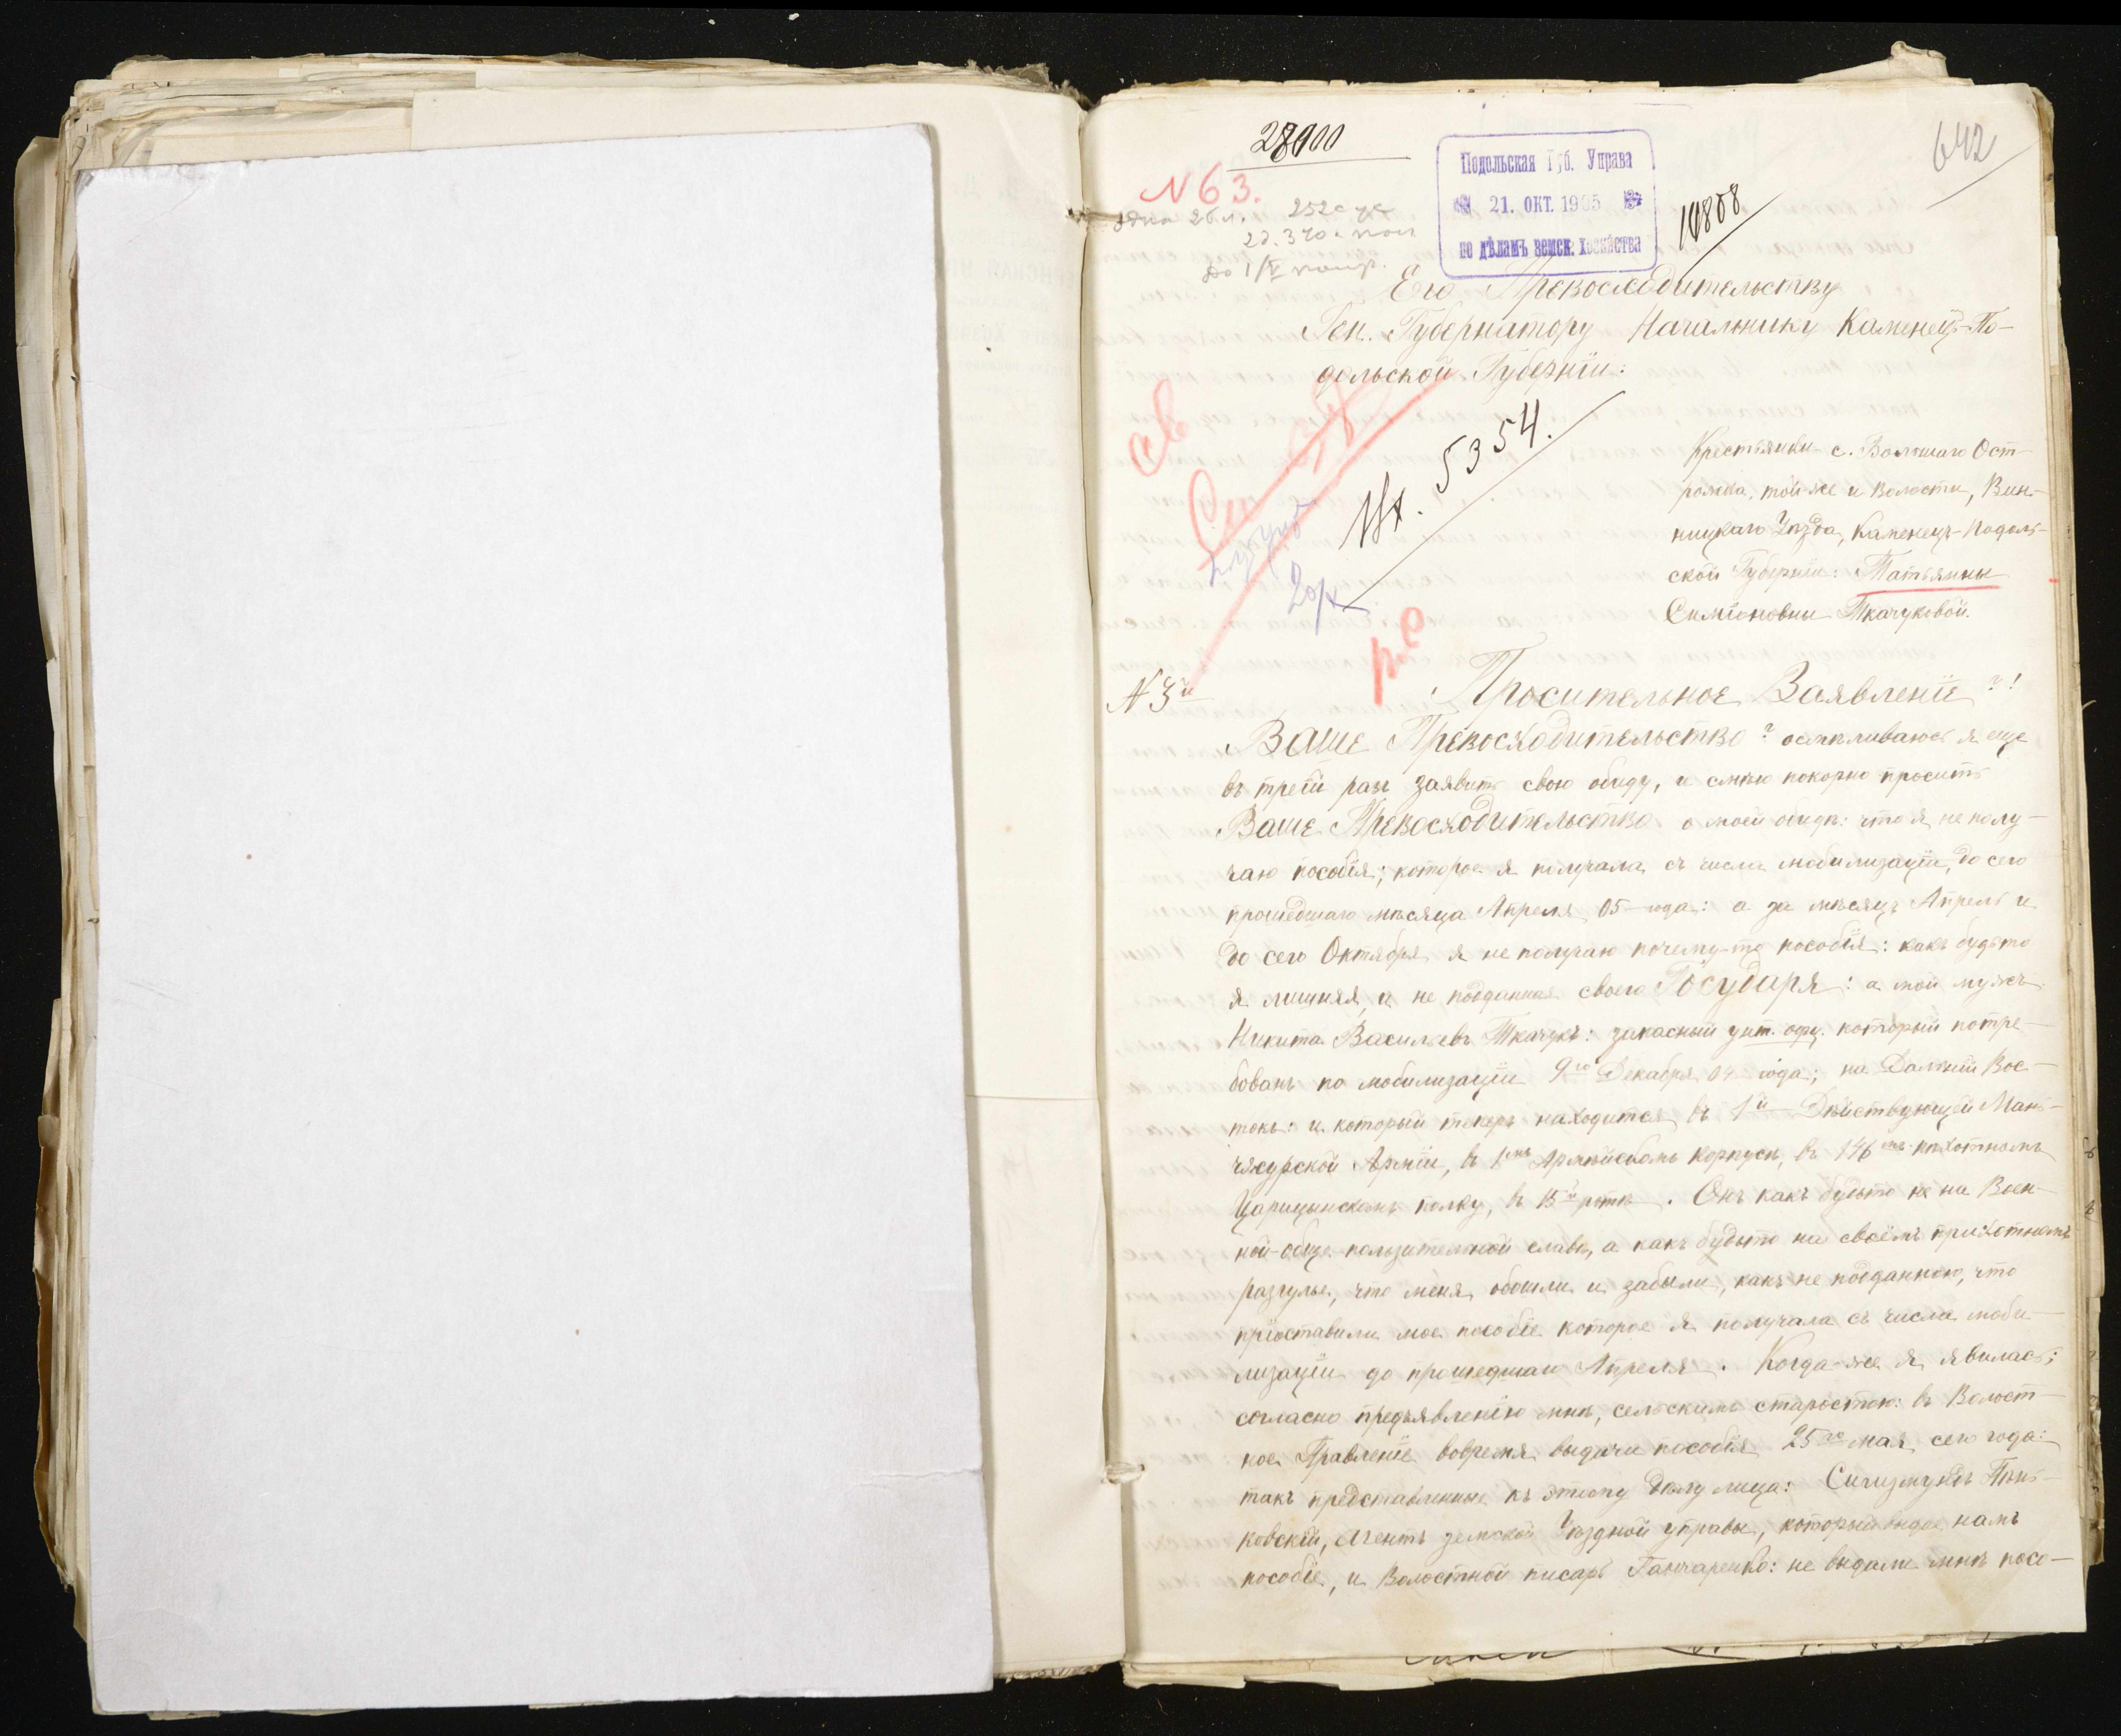 28900
642
N 63.
Подольская Губ. Управа
21. ОКТ. 1905
по дѣламъ земск. хозяйства
10808
252
до 1/V
Его Превосходительству
Ген. Губернатору Начальнику Каменецъ-По-
дольской Губернiи:
Вх. 5354.
Крестьянки с. Большаго Ост-
рожка, той-же и Волости, Вин-
ницкаго Уѣзда, Каменецъ-Подоль-
ской Губернiи: Татьянны
Симiоновны Ткачуковой.
N 3й
Просительное Заявленiе ?!
Ваше Превосходительство? осмѣливаюсь я еще
въ третiй разъ заявить свою обиду, и смѣю покорно просить
Ваше Превосходительство о моей обидѣ: что я не полу-
чаю пособiя; которое я получала съ числа мобилизацiи, до сего
прошедшаго мѣсяца Апреля 05-года: а за мѣсяцъ Апрель и
до сего Октября я не получаю почему-то пособiя: какъ будьто
я лишняя, и не подданная своего Государя: а мой мужъ
Никита Васильевъ Ткачукъ: запасный унт. офи. который потре-
бованъ по мобилизацiи 9го Декабря 04 года; на Дальнiй Вос-
токъ: и который теперь находится въ 1й Дѣйствующей Мань-
чжурской Армiи, въ 1мъ Армѣйскомъ Корпусѣ, въ 146мъ пѣхотномъ
Царицынскомъ полку, въ 15й ротѣ. Онъ какъ будьто не на Воен-
ной-обще-пользительной славѣ, а какъ будьто на своёмъ прихотномъ
разгулье, что меня обошли и забыли, какъ не подданною, что
прiоставили мое пособiе которое я получала съ числа моби-
лизацiи до прошедшаго Апреля. Когда-же я явилась;
согласно предъявленiю мнѣ, сельскимъ старостою: въ Волост-
ное Правленiе вовремя выдачи пособiя 25го мая сего года:
такъ представленные къ этому дѣлу лица: Сигизмундъ Пѣнь-
ковскiй, Агентъ земской Уѣздной управы, который выдае намъ
пособiе, и Волостной писарь Ганчаренко: не выдали мнѣ посо-